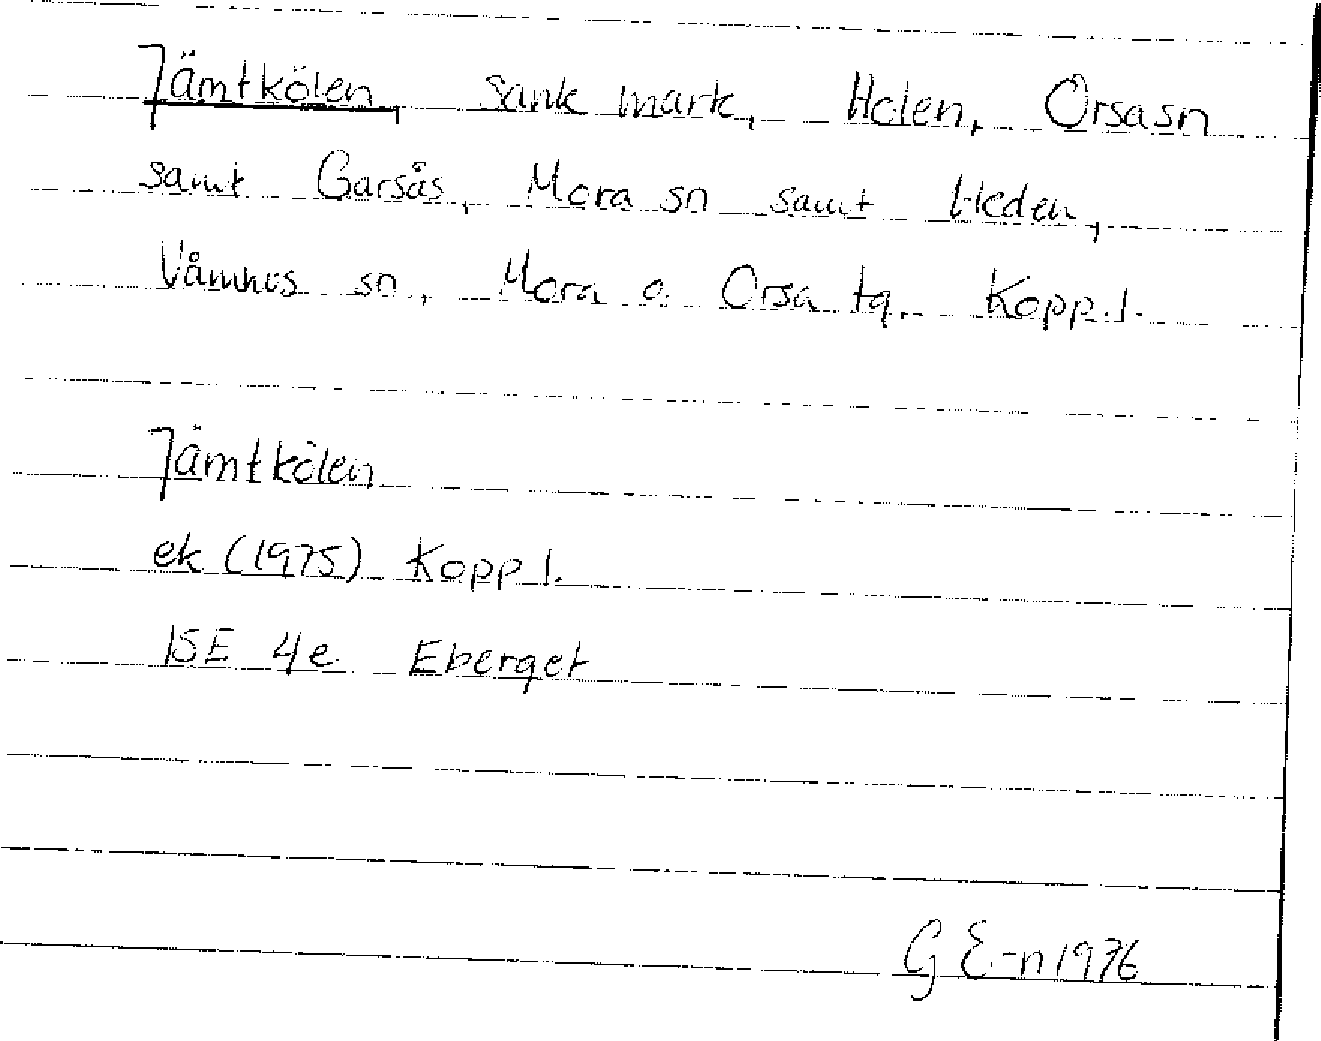 Jämtkölen, sank mark, Holen, Orsa sn
samt Garsås, Mora sn samt Heden,
Våmhus sn, Mora o. Orsa tg. Kopp. l.
Jämtkölen
ek (1975) Kopp l.
15E 4e Eberget
G E-n 1976